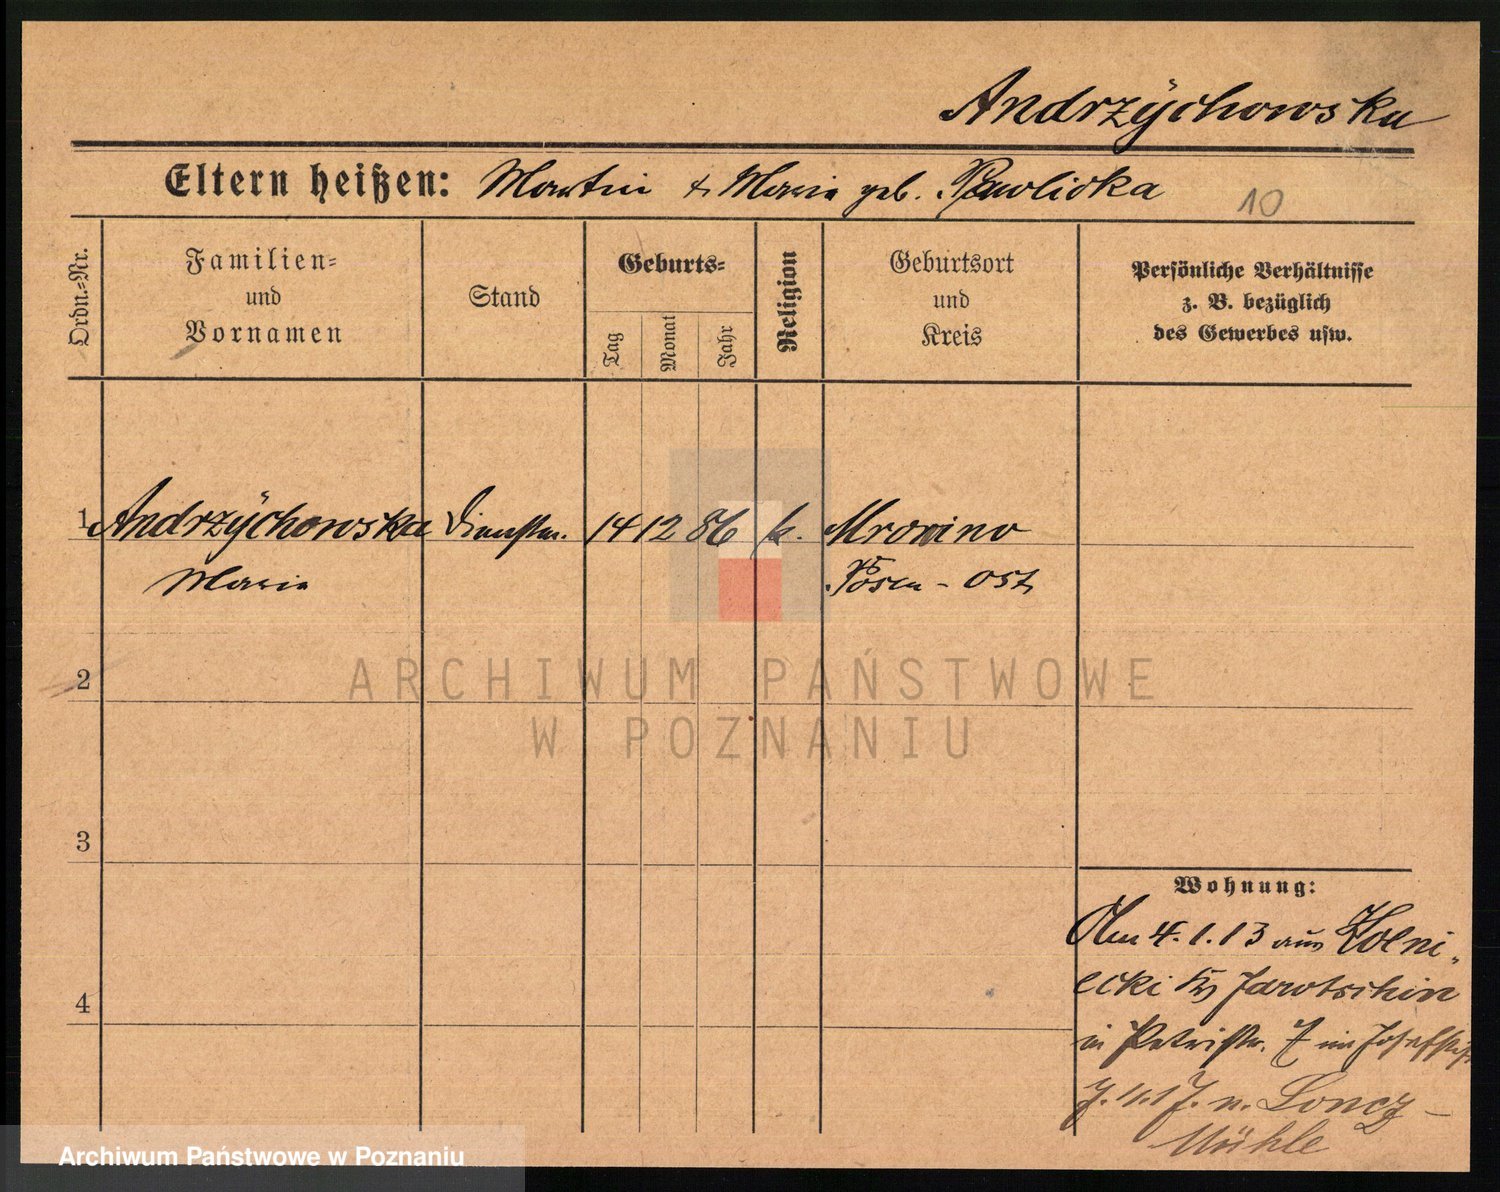 Andrzÿchowska
Eltern heißen: Martin & Maria geb. Pawlicka
10
Ordn.=Nr.
Familien=
und
Vornamen
Stand
Geburts=
Tag
Monat
Jahr
Religion
Geburtsort
und
Kreis
Persönliche Verhältnisse
z. B. bezüglich
des Gewerbes usw.
1 Andrzÿchowska Dienstm. 14 12 86 k. Mrowino
Maria Posen - Ost
2
ARCHIWUM PAŃSTWOWE
W POZNANIU
3
Wohnung:
Am 4.1.13 aus Kolni-
ecki Kr Jarotschin
4
in Petristr. 7 im Josefstift
n. Loncz-
Mühle
Archiwum Państwowe w Poznaniu